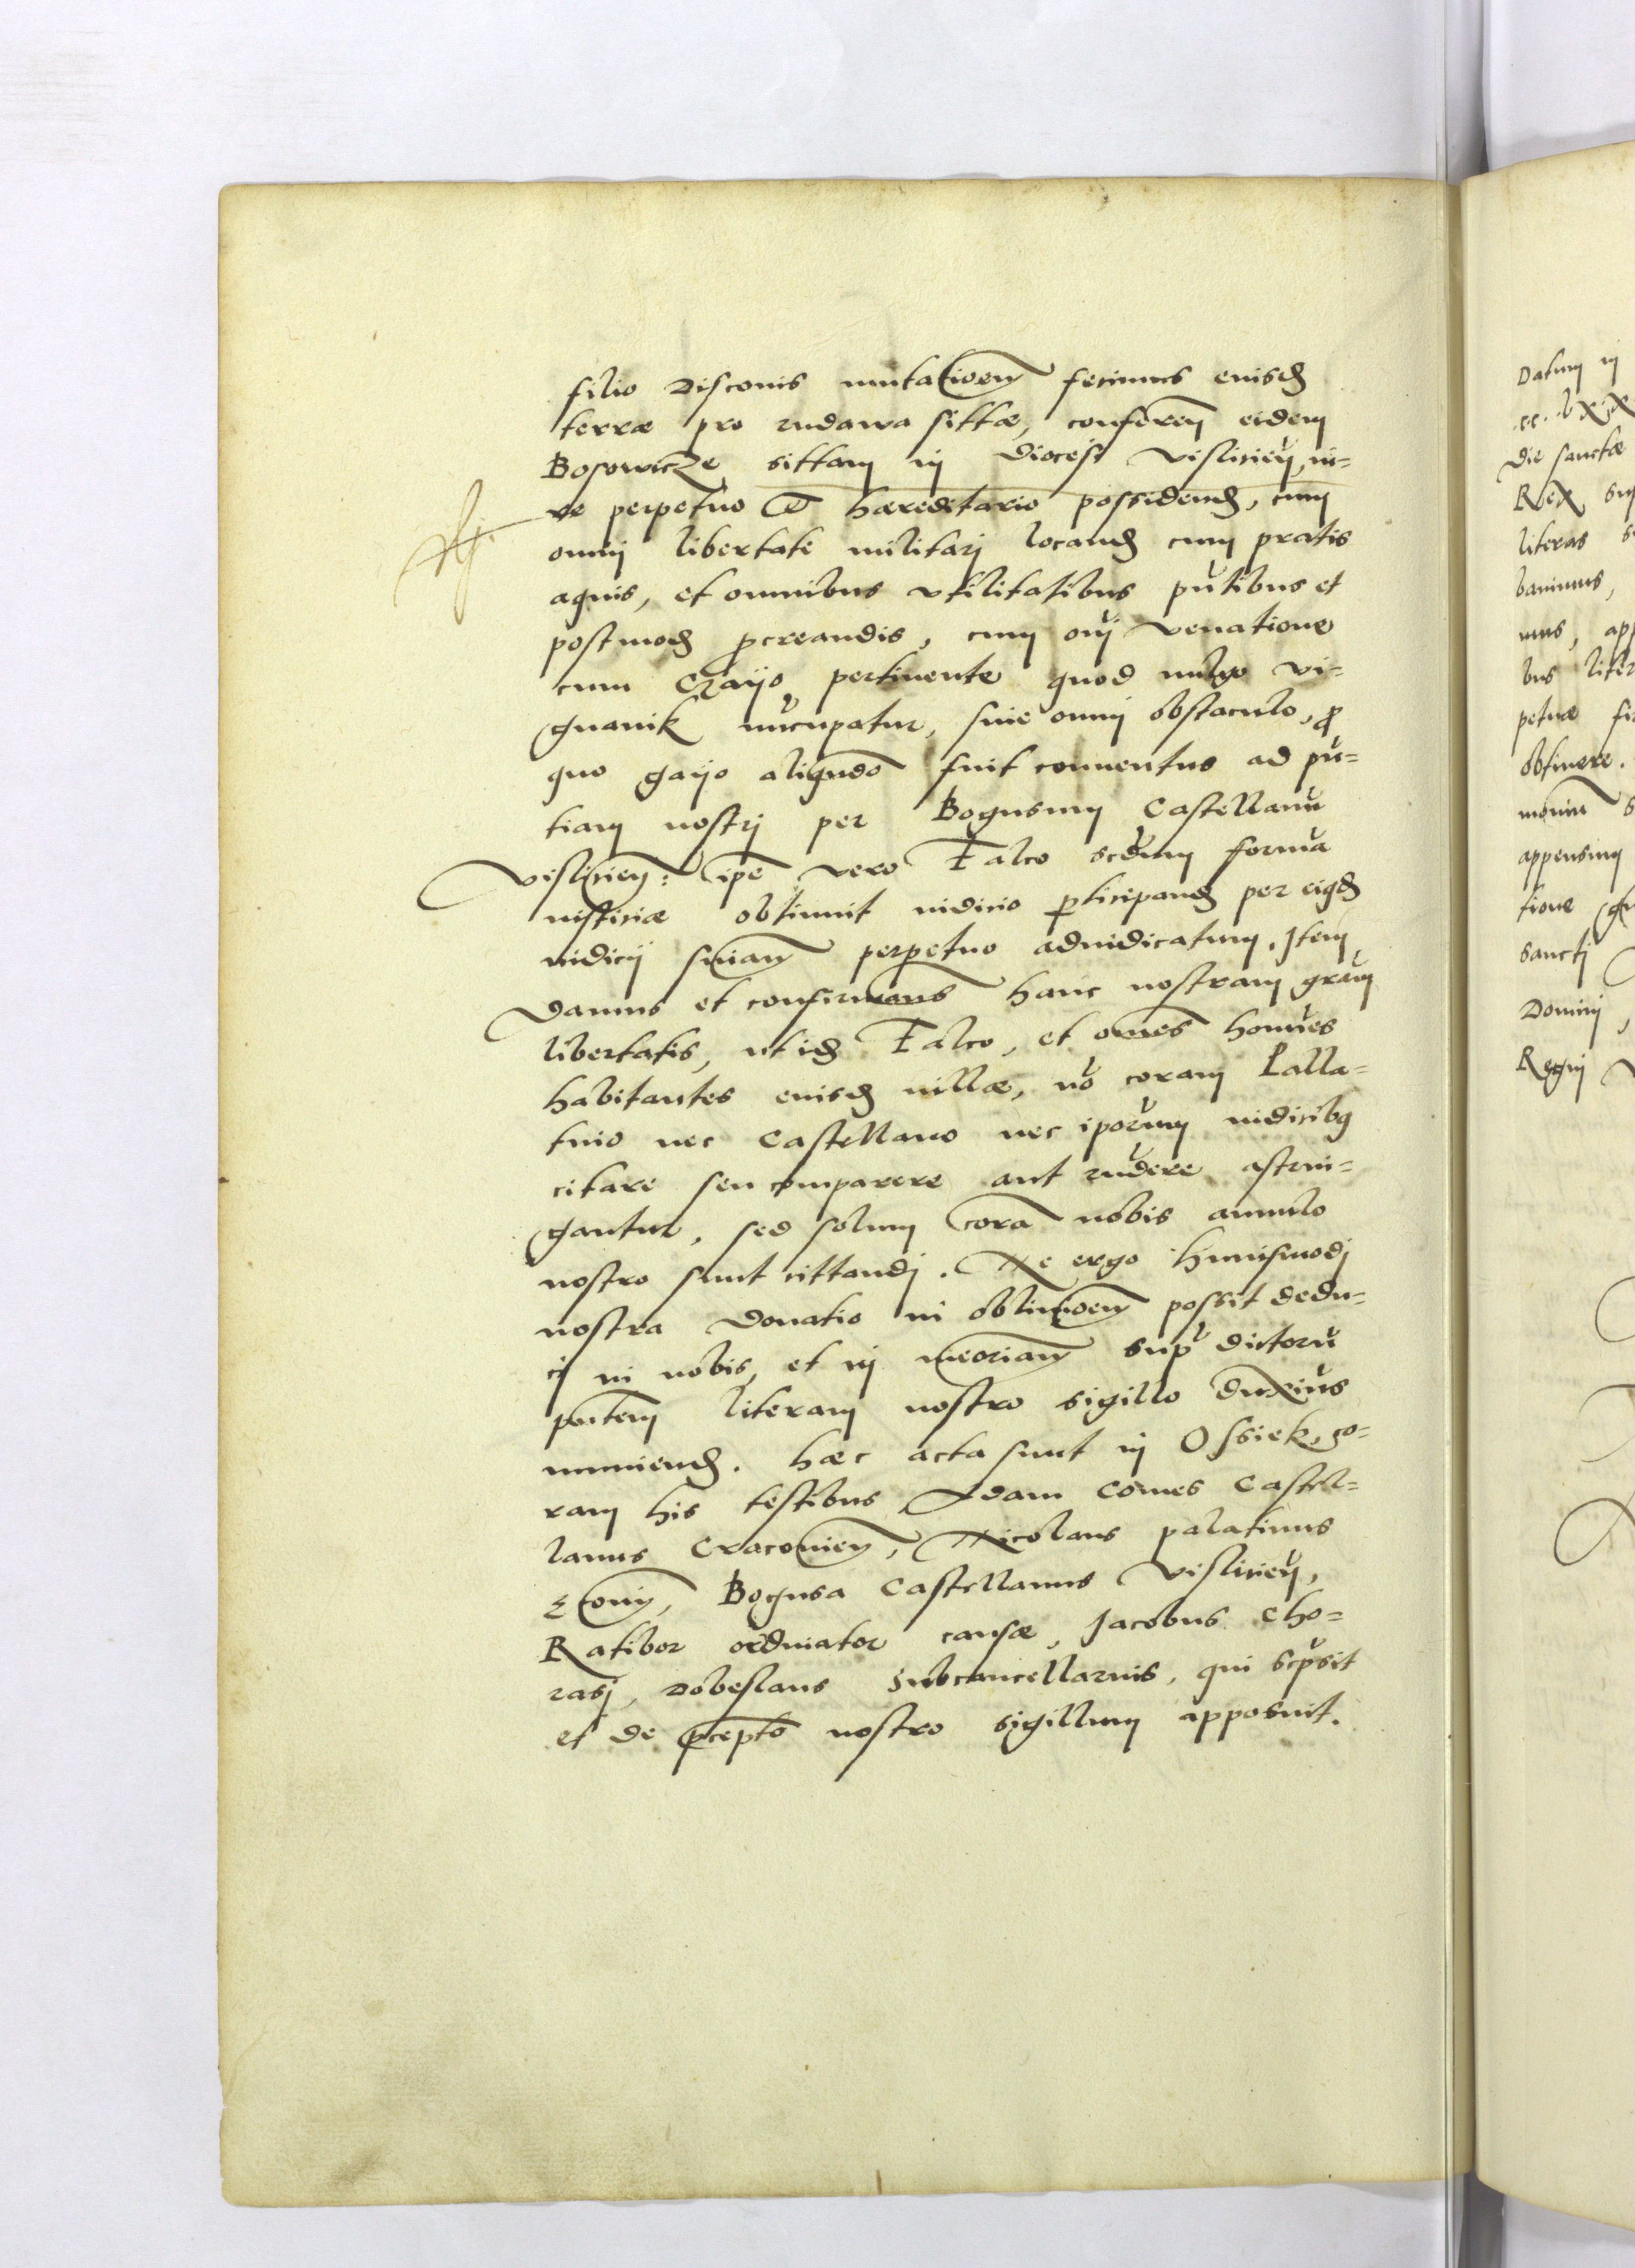 filio Disconis mutatioēm fecimus eiusd
terræ pro zudawa sittæ, conferēn eidem
Bosowicze sittam in Diocesi visliciēn, iu=
re perpetuo et hæreditario possidend, cum
omni libertate militari locand cum pratis
aquis, et omnibus vtilitatibus pn̄tibus et
postmod pcreandis, cum oī venatione
cum Gayo pertinente quod vulgo vi=
gnanik nūcupatur, sine omni obstaculo, p
quo gayo aliqn̄do fuit conuentus ad pn̄=
tiam nostri per Bogusium Castellanū
visliciēn: ipē vero Falco scdūm formā
iusticiæ obtinuit iudicio pticipand per eiqd
iudicij sn̄iam perpetuo adiudicatum. Item
Damus et confirmans hanc nostram grām
libertatis, ut id Falco, et om̄es homīes
habitantes eiusd uillæ, nō coram Palla=
tino nec Castellano nec ipōrum iudicibq
citare seu comparere aut rūdere astrin=
gantur, sed solum corā nobis annulo
nostro sunt cittandi. Ne ergo huiusmodi
nostra Donatio in obliuioēm possit dedu=
ci in nobis, et in meōriam sup dictorū
pn̄tem literam nostro sigillo duxīus
muniend. hæc acta sunt in Ossiek, co=
ram his testibus Adam Comes Castel=
lanus Cracouiēn, Nicolaus palatinus
Bogusa Castellanus visliciēn,
Ratibor ordinator causæ, Jacobus Cho=
rasj, Dobeslaus Subcancellarius, qui scpsit
et de p̄cepto nostro sigillum apposuit.
Datum in
cc. lxix
Die sanctæ
Rex
literas
banimus,
mus,
bus liter
petuæ
obtinere.
appensum
tione
sancti
Domini,
Regni